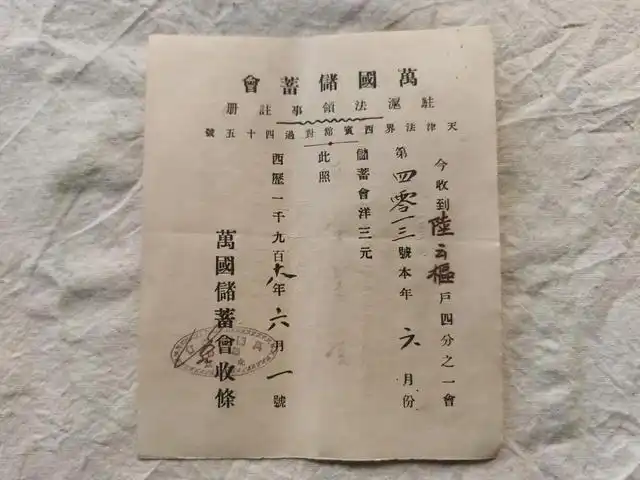 萬國儲蓄會
駐滬法領事註册
天津法界西賓館對過四十五號
今收到陸云樞戶四分之一會
第四零一三號本年六月份
儲蓄會洋三元
此照
西歷一千九百十八年六月一號
萬國儲蓄會收條